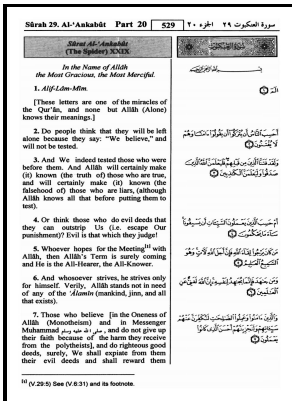 Sûrah 29. Al-'Ankabût Part 20 529 الجزء ٢٠ سورة العنكبوت ٢٩
Sûrat Al-'Ankabût
(The Spider) XXIX
In the Name of Allâh
the Most Gracious, the Most Merciful.
1. Alif-Lâm-Mîm.
[These letters are one of the miracles of
the Qur'ân, and none but Allâh (Alone)
knows their meanings.]
2. Do people think that they will be left
alone because they say: "We believe," and
will not be tested.
3. And We indeed tested those who were
before them. And Allâh will certainly make
(it) known (the truth of) those who are true,
and will certainly make (it) known (the
falsehood of) those who are liars, (although
Allâh knows all that before putting them to
test).
4. Or think those who do evil deeds that
they can outstrip Us (i.e. escape Our
punishment)? Evil is that which they judge!
5. Whoever hopes for the Meeting[1] with
Allâh, then Allâh's Term is surely coming
and He is the All-Hearer, the All-Knower.
6. And whosoever strives, he strives only
for himself. Verily, Allâh stands not in need
of any of the 'Âlamîn (mankind, jinn, and all
that exists).
7. Those who believe [in the Oneness of
Allâh (Monotheism) and in Messenger
Muhammad صلى الله عليه وسلم, and do not give up
their faith because of the harm they receive
from the polytheists], and do righteous good
deeds, surely, We shall expiate from them
their evil deeds and shall reward them
[1] (V.29:5) See (V.6:31) and its footnote.
الٓمٓ ①
أَحَسِبَ ٱلنَّاسُ أَن يُتْرَكُوٓا۟ أَن يَقُولُوٓا۟ ءَامَنَّا وَهُمْ
لَا يُفْتَنُونَ ②
وَلَقَدْ فَتَنَّا ٱلَّذِينَ مِن قَبْلِهِمْ فَلَيَعْلَمَنَّ ٱللَّهُ ٱلَّذِينَ
صَدَقُوا۟ وَلَيَعْلَمَنَّ ٱلْكَـٰذِبِينَ ③
أَمْ حَسِبَ ٱلَّذِينَ يَعْمَلُونَ ٱلسَّيِّـَٔاتِ أَن يَسْبِقُونَا
سَآءَ مَا يَحْكُمُونَ ④
مَن كَانَ يَرْجُوا۟ لِقَآءَ ٱللَّهِ فَإِنَّ أَجَلَ ٱللَّهِ لَـَٔاتٍ وَهُوَ
ٱلسَّمِيعُ ٱلْعَلِيمُ ⑤
وَمَن جَـٰهَدَ فَإِنَّمَا يُجَـٰهِدُ لِنَفْسِهِۦٓ إِنَّ ٱللَّهَ لَغَنِىٌّ عَنِ
ٱلْعَـٰلَمِينَ ⑥
وَٱلَّذِينَ ءَامَنُوا۟ وَعَمِلُوا۟ ٱلصَّـٰلِحَـٰتِ لَنُكَفِّرَنَّ عَنْهُمْ
سَيِّـَٔاتِهِمْ وَلَنَجْزِيَنَّهُمْ أَحْسَنَ ٱلَّذِى كَانُوا۟
يَعْمَلُونَ ⑦